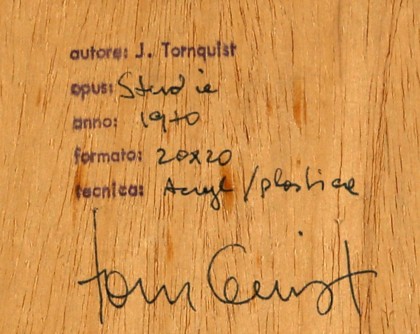 autore: J. Tornquist
opus: Studie
anno: 1970
formato: 20x20
tecnica: Acryl/plastica
Tornquist